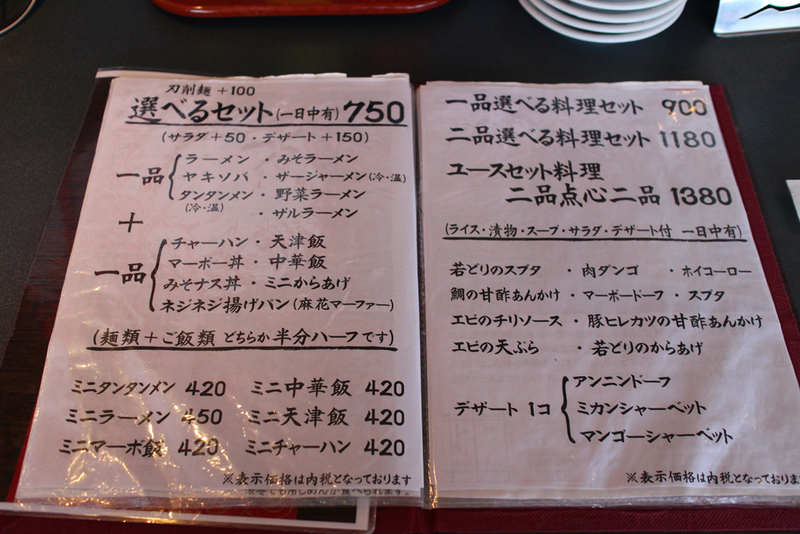 刀削麺 +100
選べるセット(一日中有) 750
(サラダ +50・デザート +150)
一品
ラーメン ・ みそラーメン
ヤキソバ ・ ザージャーメン(冷・温)
タンタンメン ・ 野菜ラーメン
(冷・温)
・ ザルラーメン
+
一品
チャーハン ・ 天津飯
マーボー丼 ・ 中華飯
みそナス丼 ・ ミニからあげ
ネジネジ揚げパン (麻花マーファー)
(麺類 + ご飯類 どちらか 半分ハーフです)
ミニタンタンメン 420 ミニ中華飯 420
ミニラーメン 450 ミニ天津飯 420
ミニマーボ飯 420 ミニチャーハン 420
※表示価格は内税となっております
一品選べる料理セット 900
二品選べる料理セット 1180
ユースセット料理
二品点心二品 1380
(ライス・漬物・スープ・サラダ・デザート付 一日中有)
若どりのスブタ ・ 肉ダンゴ ・ ホイコーロー
鯛の甘酢あんかけ ・ マーボードーフ ・ スブタ
エビのチリソース ・ 豚ヒレカツの甘酢あんかけ
エビの天ぷら ・ 若どりのからあげ
デザート 1コ
アンニンドーフ
ミカンシャーベット
マンゴーシャーベット
※表示価格は内税となっております